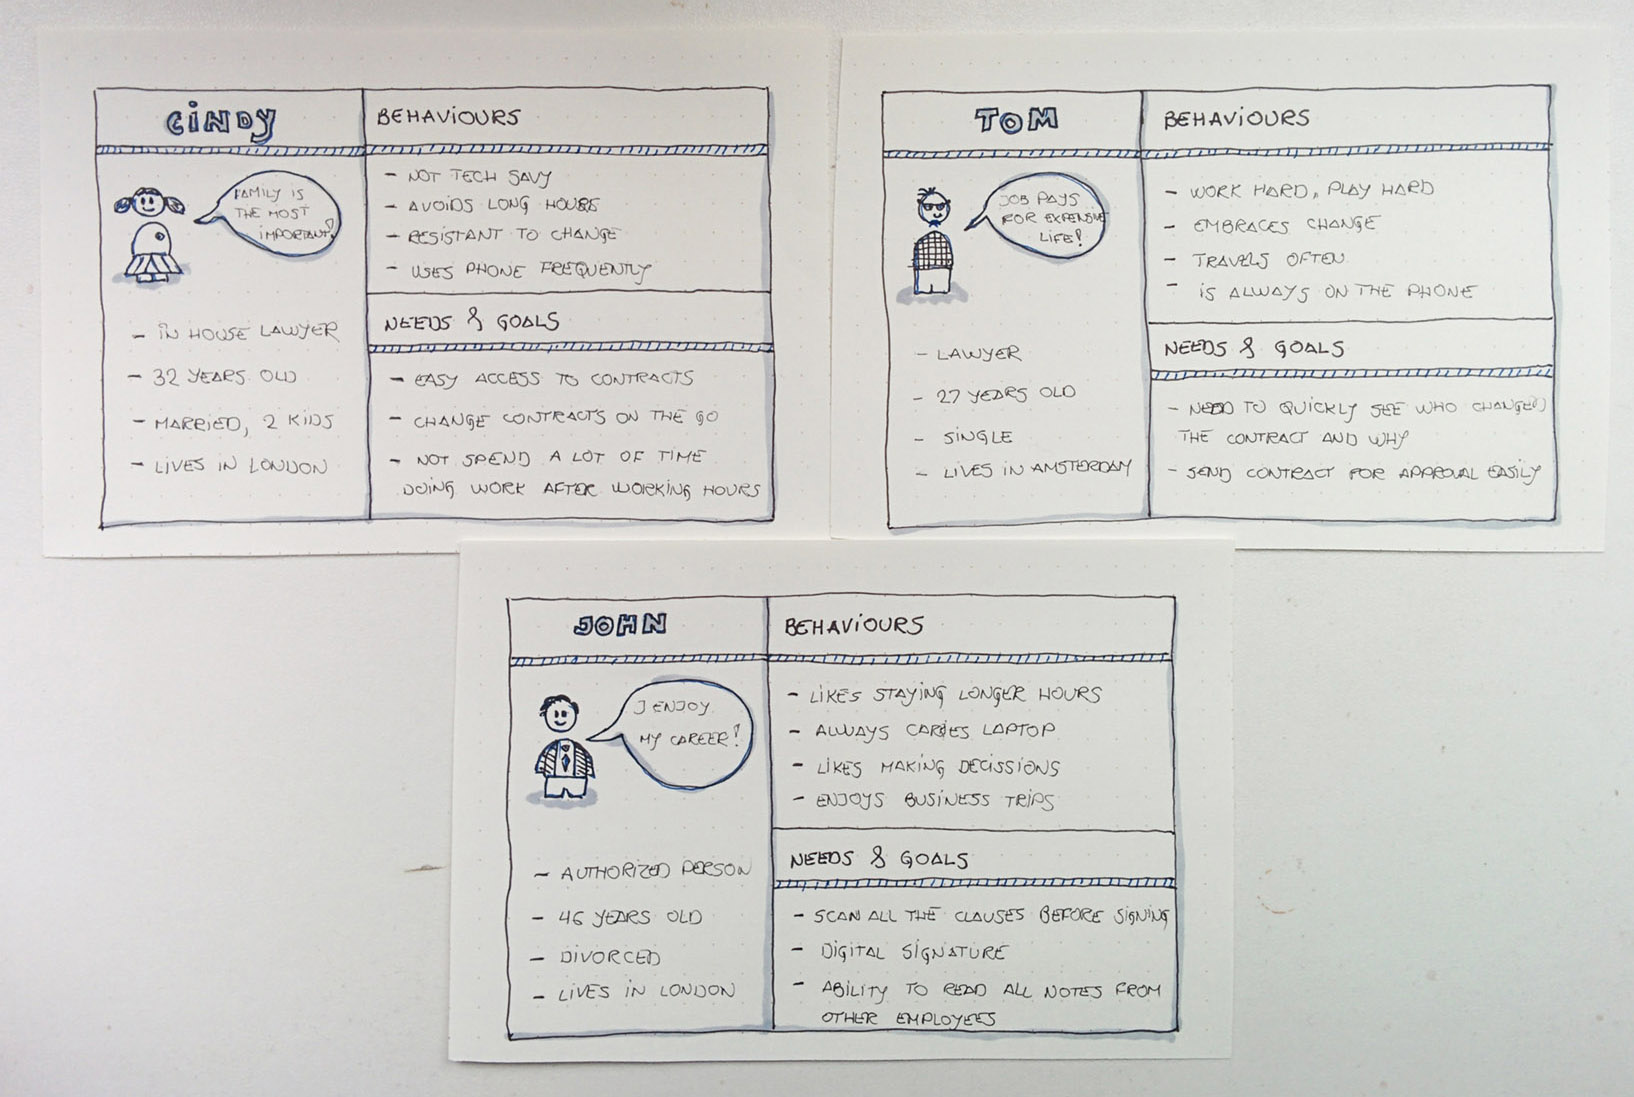 CINDY
FAMILY IS
THE MOST
IMPORTANT!
- IN HOUSE LAWYER
- 32 YEARS OLD
- MARRIED, 2 KIDS
- LIVES IN LONDON
BEHAVIOURS
- NOT TECH SAVY
- AVOIDS LONG HOURS
- RESISTANT TO CHANGE
- USES PHONE FREQUENTLY
NEEDS & GOALS
- EASY ACCESS TO CONTRACTS
- CHANGE CONTRACTS ON THE GO
- NOT SPEND A LOT OF TIME
DOING WORK AFTER WORKING HOURS
TOM
JOB PAYS
FOR EXPENSIVE
LIFE!
- LAWYER
- 27 YEARS OLD
- SINGLE
- LIVES IN AMSTERDAM
BEHAVIOURS
- WORK HARD, PLAY HARD
- EMBRACES CHANGE
- TRAVELS OFTEN
- IS ALWAYS ON THE PHONE
NEEDS & GOALS
- NEED TO QUICKLY SEE WHO CHANGED
THE CONTRACT AND WHY
- SEND CONTRACT FOR APPROVAL EASILY
JOHN
I ENJOY
MY CAREER!
- AUTHORIZED PERSON
- 46 YEARS OLD
- DIVORCED
- LIVES IN LONDON
BEHAVIOURS
- LIKES STAYING LONGER HOURS
- ALWAYS CARIES LAPTOP
- LIKES MAKING DECISSIONS
- ENJOYS BUSINESS TRIPS
NEEDS & GOALS
- SCAN ALL THE CLAUSES BEFORE SIGNING
- DIGITAL SIGNATURE
- ABILITY TO READ ALL NOTES FROM
OTHER EMPLOYEES